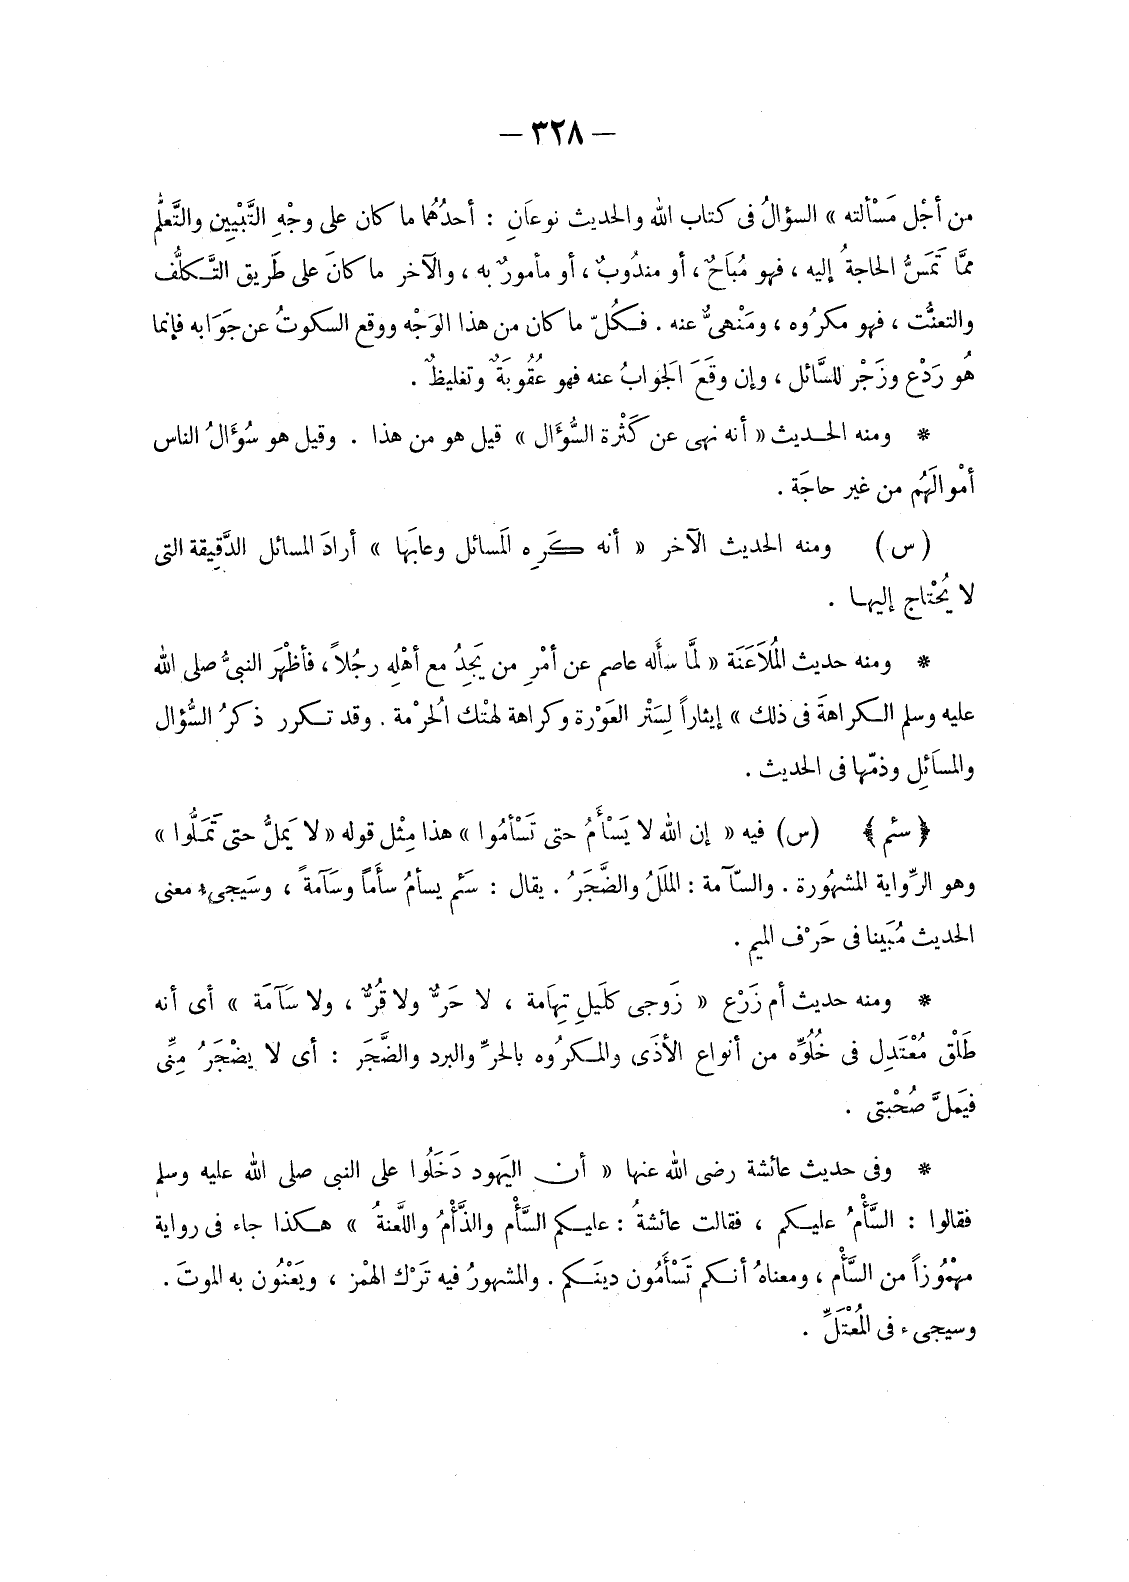 — ٣٢٨ —
من أجْل مَسْألته » السؤالُ فى كتاب الله والحديث نوعَانِ : أحدُهُما ما كان على وجْهِ التَّبْيِين والتَّعلُّم
ممَّا تَمَسُّ الحاجةُ إليه ، فهو مُبَاحٌ ، أو مندُوبٌ ، أو مأمورٌ به ، والآخر ما كانَ على طَريق التَّـكلُّف
والتعنُّت ، فهو مكرُوه ، ومَنْهىٌّ عنه . فـكُلّ ما كان من هذا الوَجْه ووقع السكوتُ عن جَوَابه فإنما
هُو رَدْع وزَجْر للسَّائل ، وإن وقَعَ الجَوابُ عنه فهو عُقُوبَةٌ وتغليظٌ .
* ومنه الحـديث « أنه نهى عن كَثْرة السُّؤَال » قيل هو من هذا . وقيل هو سُؤَالُ الناس
أمْوالَهُم من غير حاجَة .
( س ) ومنه الحديث الآخر « أنه كَرِه المَسائل وعابَها » أرادَ المسائل الدَّقِيقة التى
لا يُحْتاج إليها .
* ومنه حديث المُلاَعَنَة « لمَّا سأَله عاصم عن أمْرِ من يَجِدُ مع أهْلِه رجُلاً ، فأظْهَر النبىُّ صلى الله
عليه وسلم الـكراهةَ فى ذلك » إيثاراً لِسَتْر العَوْرة وكراهة لهَتْك الحُرْمة . وقد تـكرر ذكرُ السُّؤال
والمسَائِل وذمّها فى الحديث .
﴿ سئم ﴾ (س) فيه « إن الله لا يَسْأَمُ حتى تَسْأمُوا » هذا مِثْل قوله « لا يَملُّ حتى تَمَلُّوا »
وهو الرِّواية المشهُورة . والسّآمة : المَلَلُ والضَّجَرُ . يقال : سَئم يسأمُ سأَماً وسَآمةً ، وسَيجىء معنى
الحديث مُبَينا فى حَرْف الميم .
* ومنه حديث أم زَرْع « زَوجى كلَيلِ تِهاَمة ، لا حَرٌّ ولا قُرٌّ ، ولا سَآمَة » أى أنه
طَلْق مُعْتَدِل فى خُلُوِّه من أنواع الأذَى والمـكرُوه بالحرِّ والبرد والضَّجَر : أى لا يضْجَرُ مِنِّى
فيَملَّ صُحْبتى .
* وفى حديث عائشة رضى الله عنها « أن اليَهود دَخَلُوا على النبى صلى الله عليه وسلم
فقالوا : السَّأْمُ عليـكم ، فقالت عائشةُ : عليـكم السَّأْم والذَّأْمُ واللَّعنةُ » هـكذا جاء فى رواية
مهْمُوزاً من السَّأْم ، ومعناهُ أنـكم تَسْأَمُون دينَـكم . والمشهورُ فيه تَرْك الهَمْز ، ويَعْنُون به الموتَ .
وسيجىء فى المُعْتَلِّ .